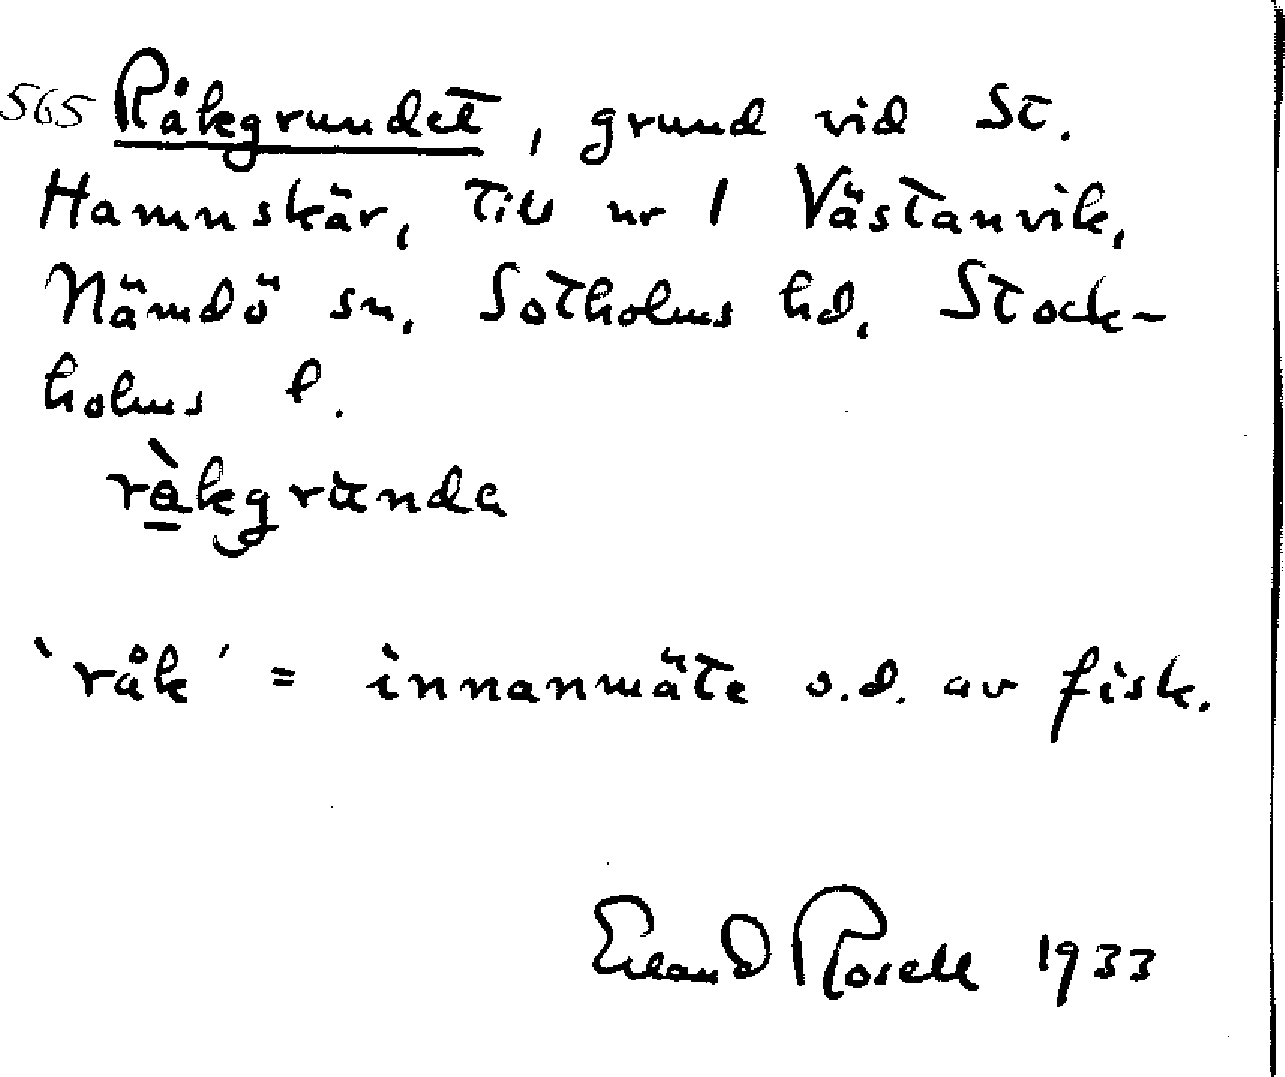 565 Råkgrundet, grund vid St.
Hamnskär, till nr 1 Västanvik,
Nämdö sn, Sotholms hd, Stock-
holms l.
råkgrunda
`råk´ = innanmäte o.d. av fisk.
Erland Rosell 1933